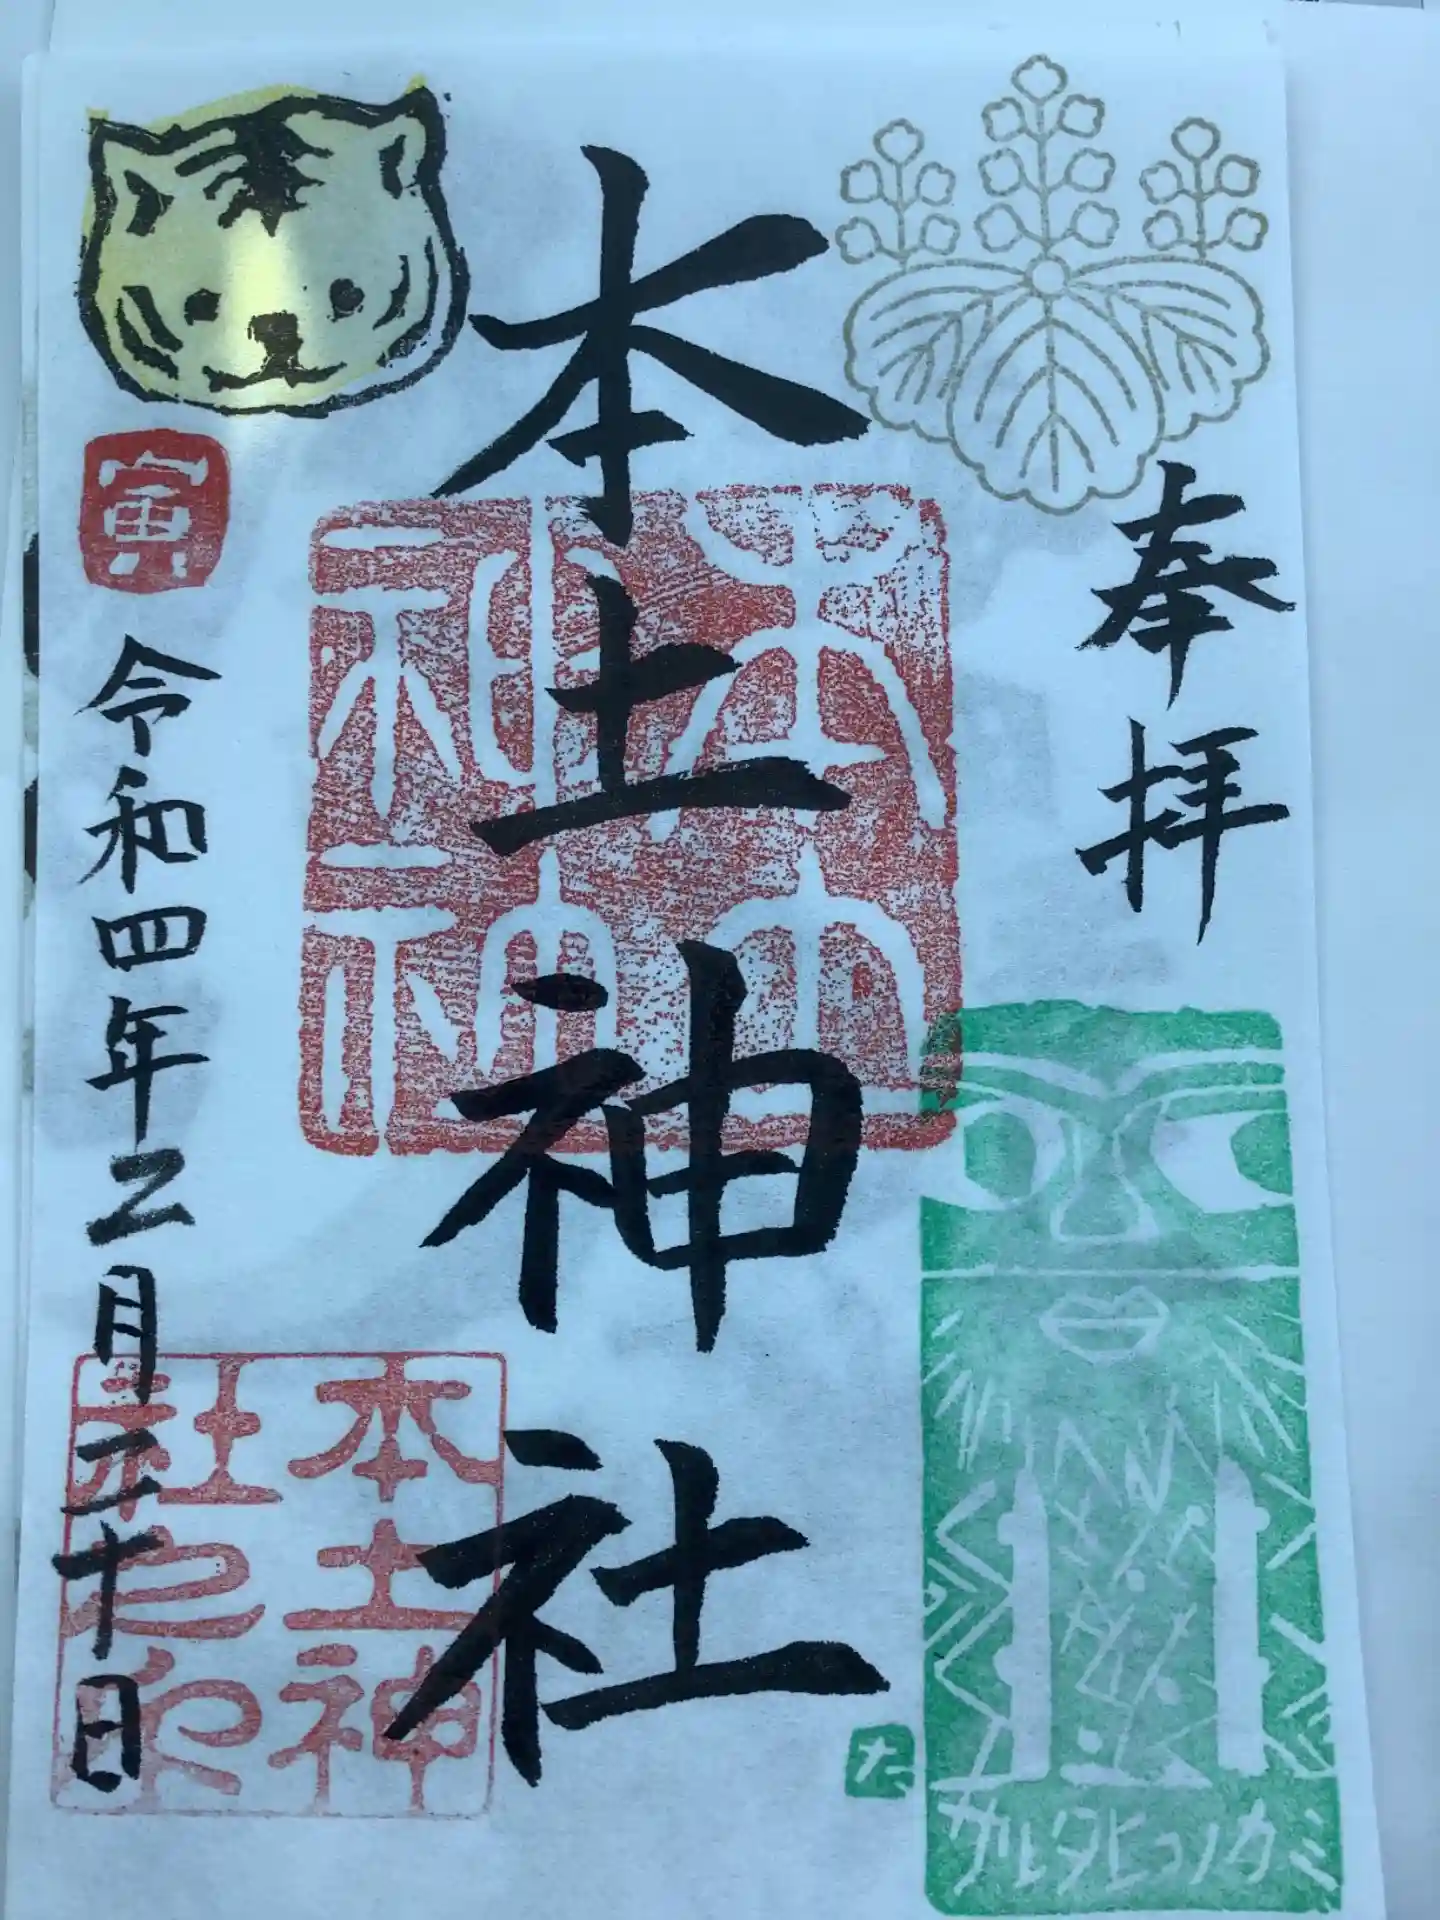 奉拝
本土神社
本土神社
寅
令和四年二月二十日
本土神社之印
サルタヒコノカミ
た